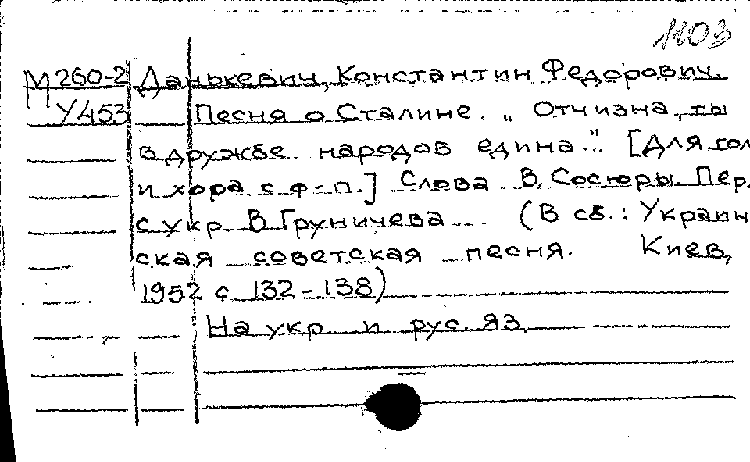 1103
М260-2 Данькевич, Константин Федорович.
У453 Песня о Сталине. „Отчизна, ты
в дружбе народов едина." [Для гол
и хора с ф-п.] Слова В. Сосюры Пер.
с укр В. Груничева (В сб.: Украин
ская советская песня. Киев,
1952 с 132-138)
На укр и рус. яз.